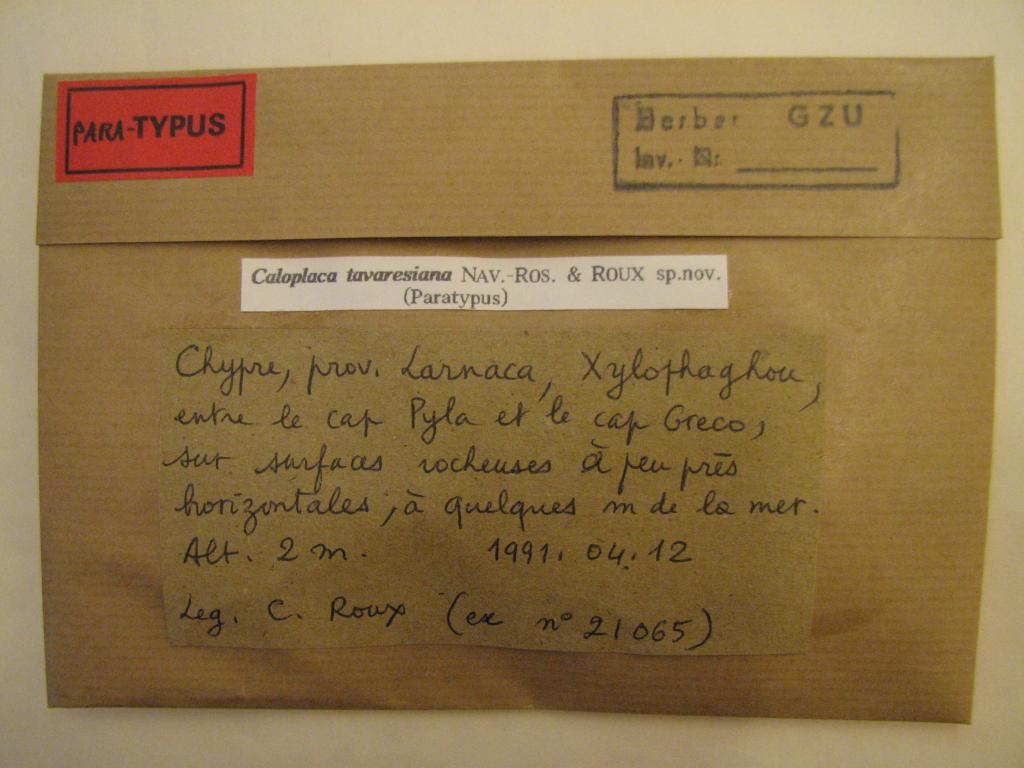 PARA-TYPUS
Herbar GZU
Inv.-Nr.
Caloplaca tavaresiana NAV.-ROS. & ROUX sp.nov.
(Paratypus)
Chypre, prov. Larnaca, Xylophaghou,
entre le cap Pyla et le cap Greco,
sur surfaces rocheuses à peu près
horizontales, à quelques m de la mer.
Alt. 2 m. 1991. 04. 12
Leg. C. Roux (ex n° 21065)